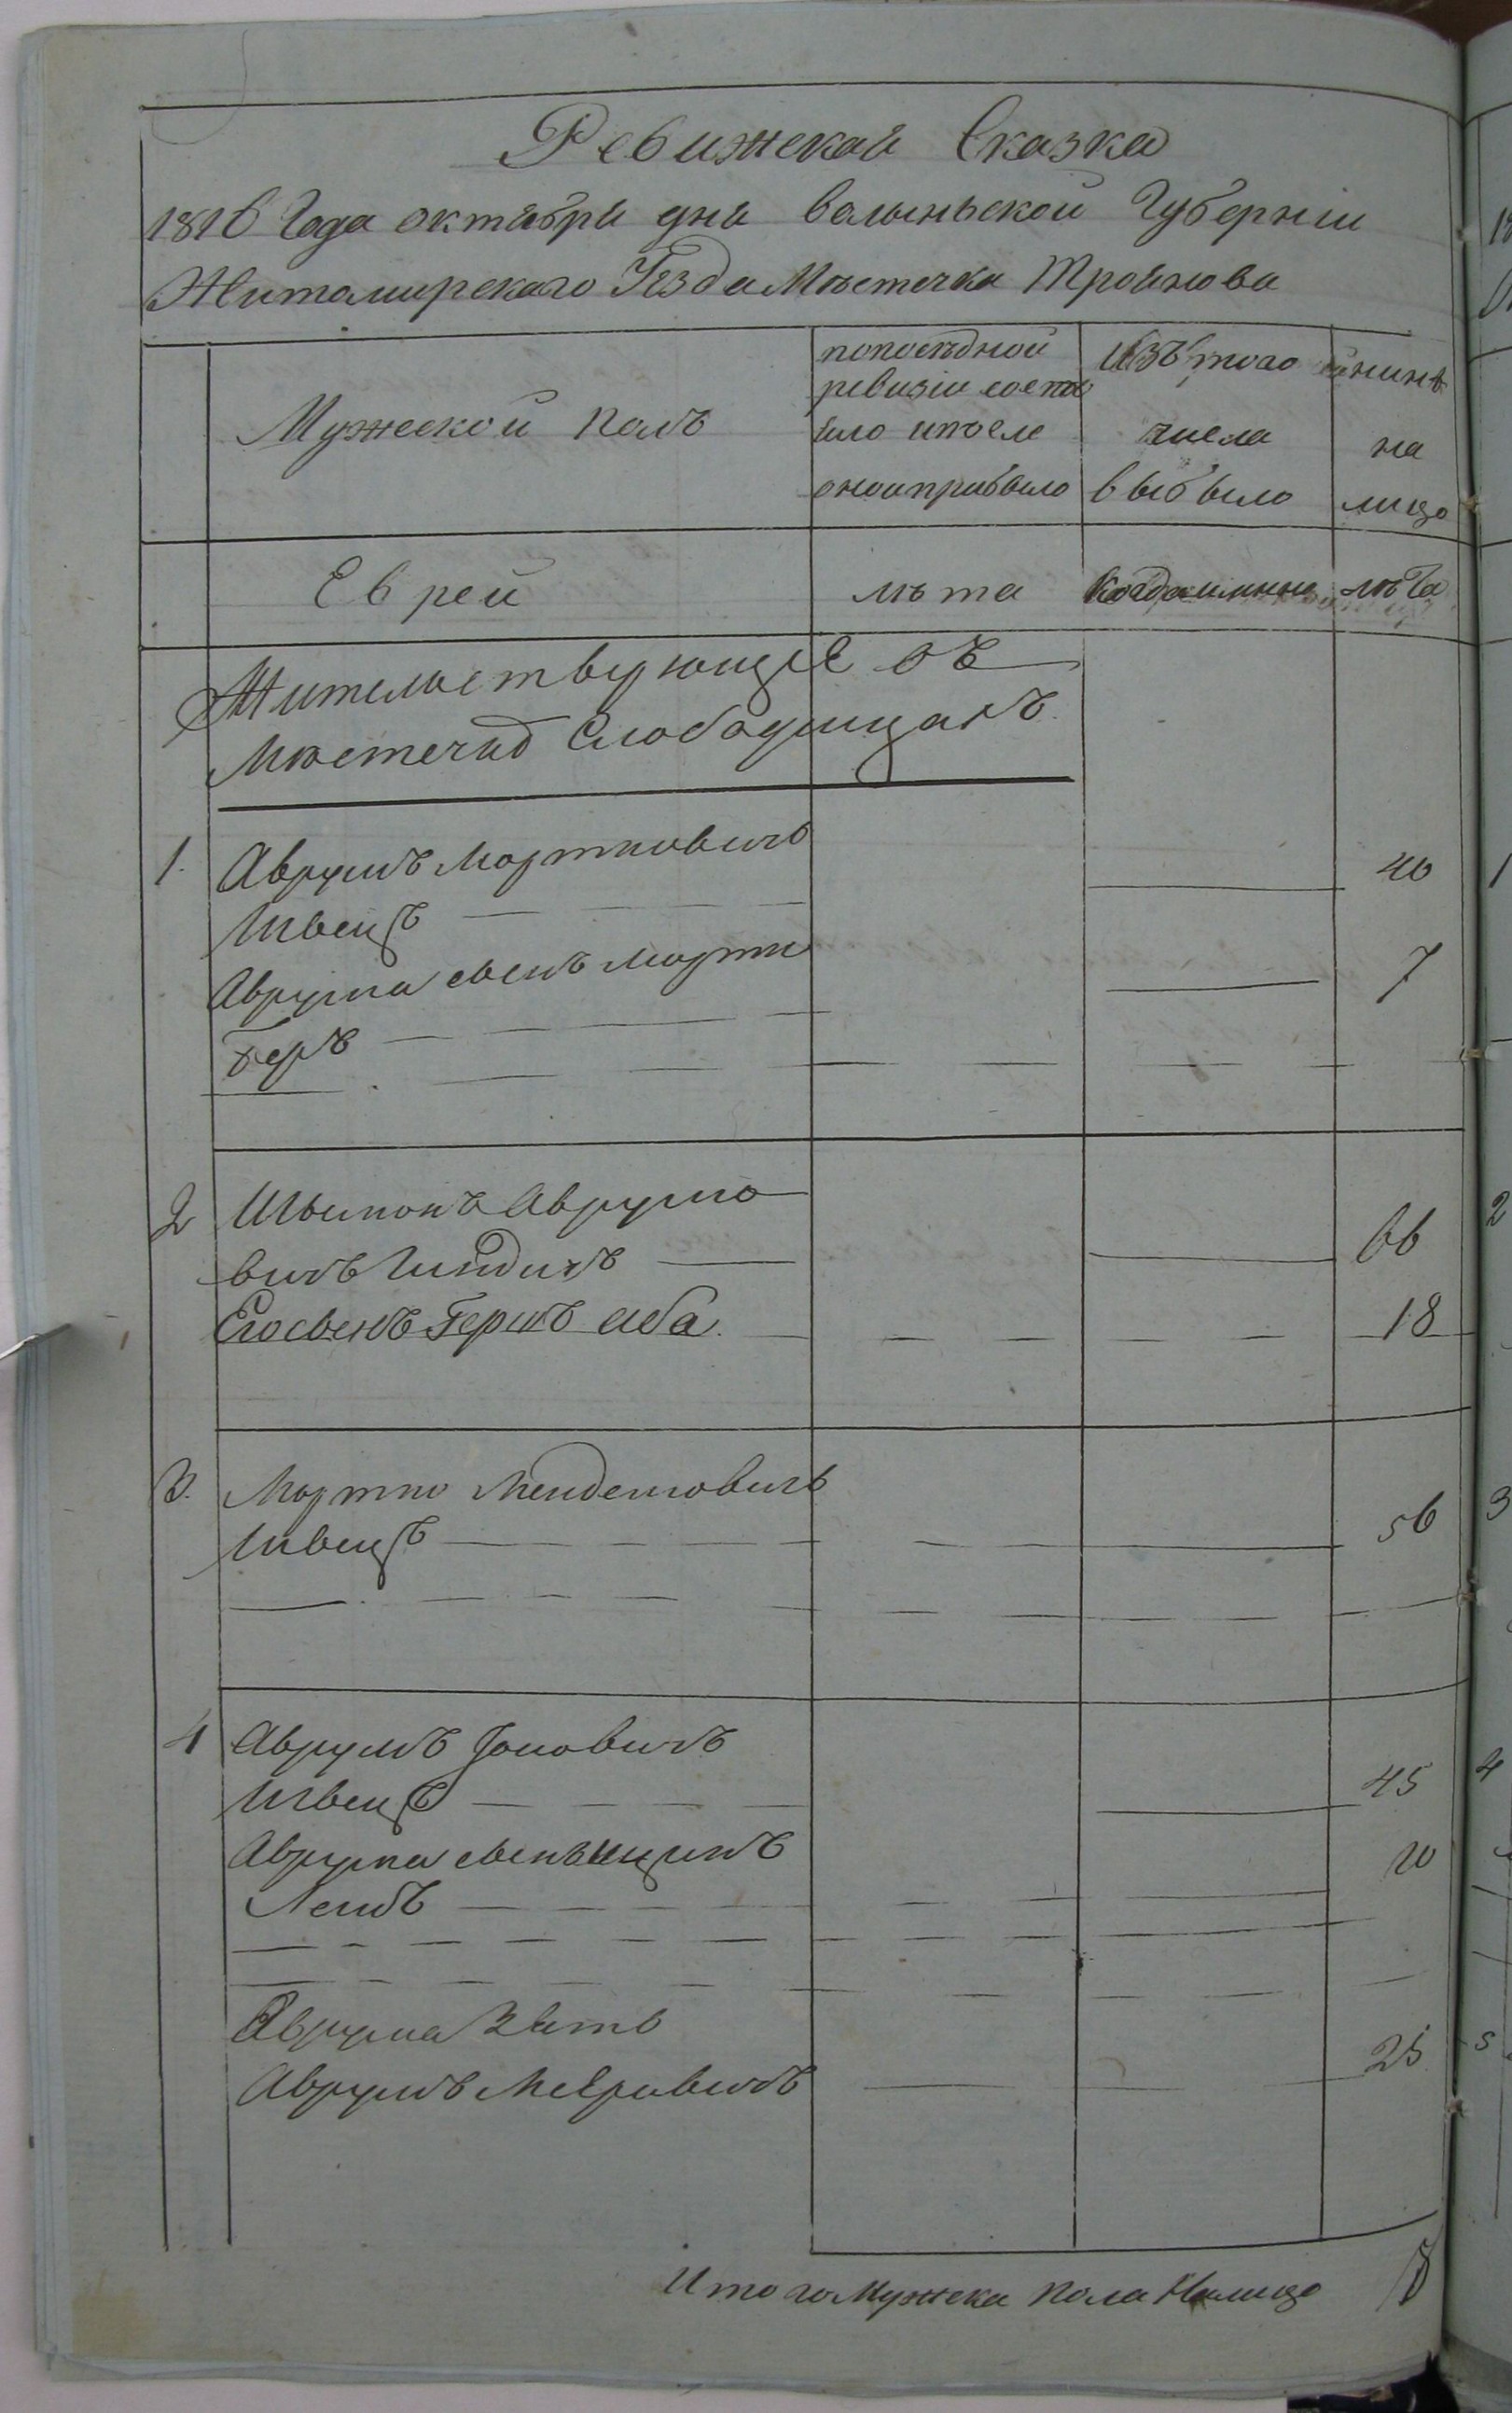 Ревижскоя Сказка
1816 Года октября дня волыньской Губерніи
Житомирскаго Уезда Мъстечка Троянова
Мужеской полъ
попослѣдной
ревизіи состо
яло ипосле
оной прибыло
Изъ того
числа
выбыло
нинѣ
на
лицо
Еврей
лѣта
Когда имянно
лѣта
Жительствующіе въ
Местечкѣ Слободищахъ
1. Аврумъ Мортковичъ
Швецъ 40
Аврума сынъ Мортко
Беръ 7
2 Шымонъ Аврумо
вичъ 66
Егосынъ Гершъ Аба 18
3. Мортко Менделовичъ
Швецъ 56
4 Аврумъ Іоповичъ
Швецъ 45
Аврума сынъ Ицикъ
Лейбъ 10
Аврума Зять
Аврумъ Меѣровичъ 25
Итого Мужска пола Налицо 8
1
2
3
4
5